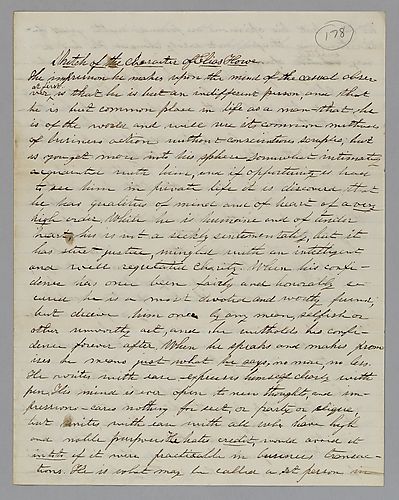 178
Sketch of the character of Elias Howe
The impression he makes upon the mind of the casual obser-
at first
ver, is that he is but an indifferent person, and that
he is but common place in life as a man - that he
is of the world and will use it common methods
of business action without conscientious scruples, but
as you get more into his sphere somewhat intimately
acquainted with him, and if opportunity is had
to see him in private life it is discovered that
he has qualities of mind and of heart of a very
high order. While he is humane and of tender
heart, his is not a sickly sentimentality, but it
has strict justice, mingled with an intelligent
and well regulated charity. When his confi-
dence has once been fairly and honorably se-
cured he is a most devoted and worthy friend,
but deceive him once by any mean, selfish or
other unworthy act, and he witholds his confi-
dence forever after. When he speaks and makes prom
ises he means just what he says, no more, no less.
He writes with ease - expresses himself clearly with
pen. His mind is ever open to new thought, and im-
pressions - cares nothing for sect, or party or clique,
but unites with ease with all who have high
and noble purposes. He hates credit, would avoid it
in toto if it were practicable in business transac-
tions. He is what may be called a set person in